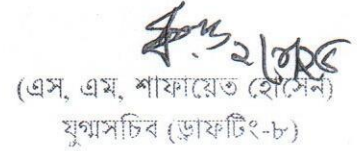 (এস, এম, শাফায়েত হোসেন)
যুগ্মসচিব (ড্রাফটিং-৮)